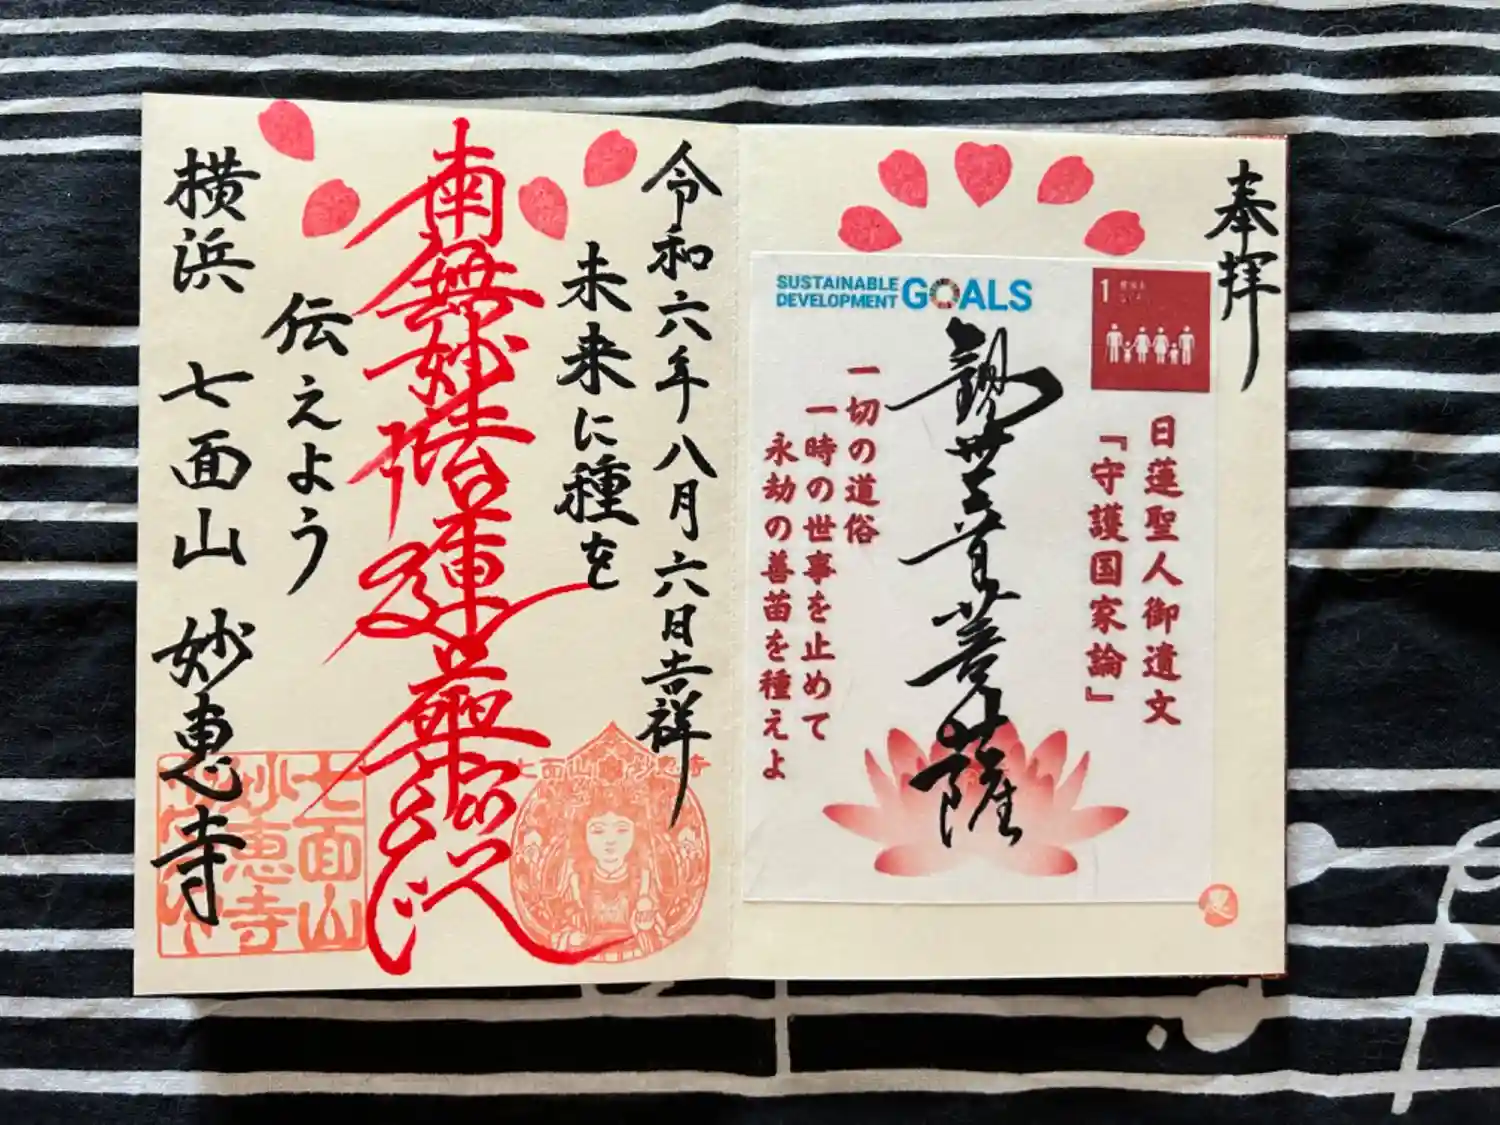 奉拝
SUSTAINABLE
DEVELOPMENT
GOALS
1
日蓮聖人御遺文
『守護国家論』
観世音菩薩
一切の道俗
一時の世事を止めて
永劫の善苗を種えよ
令和六年八月六日吉祥
未来に種を
南無妙
蓮
伝えよう
横浜 七面山 妙恵寺
七面山妙恵寺
七面山
妙恵寺